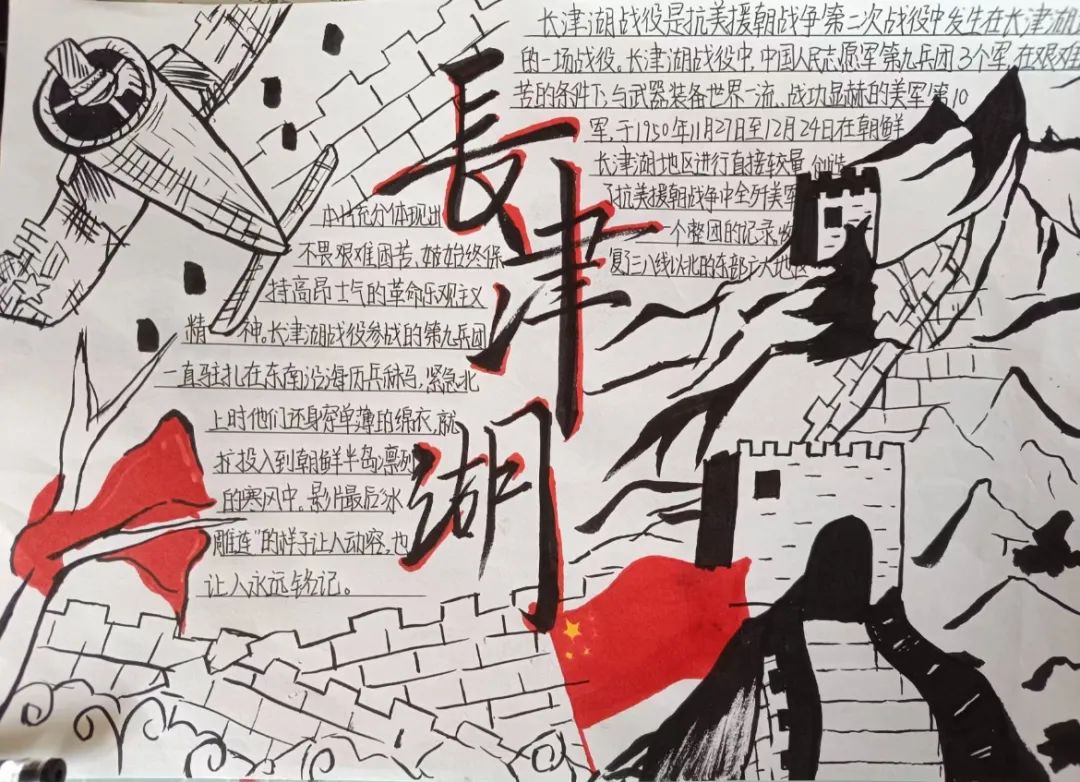 長津湖
长津湖战役是抗美援朝战争第二次战役中发生在长津湖
的一场战役。长津湖战役中，中国人民志愿军第九兵团3个军，在艰难
苦的条件下，与武器装备世界一流、战功显赫的美军第10
军，于1950年11月27日至12月24日在朝鲜
长津湖地区进行直接较量，创造
了抗美援朝战争中全歼美军
一个整团的记录，
复了三八线以北的东部广大地区
本片充分体现出
不畏艰难困苦、始终保
持高昂士气的革命乐观主义
精神。长津湖战役参战的第九兵团
一直驻扎在东南沿海历兵秣马，紧急北
上时他们还身穿单薄的绵衣，就
投入到朝鲜半岛凛冽
的寒风中。影片最后冰
雕连"的样子让人动容，也
让人永远铭记。